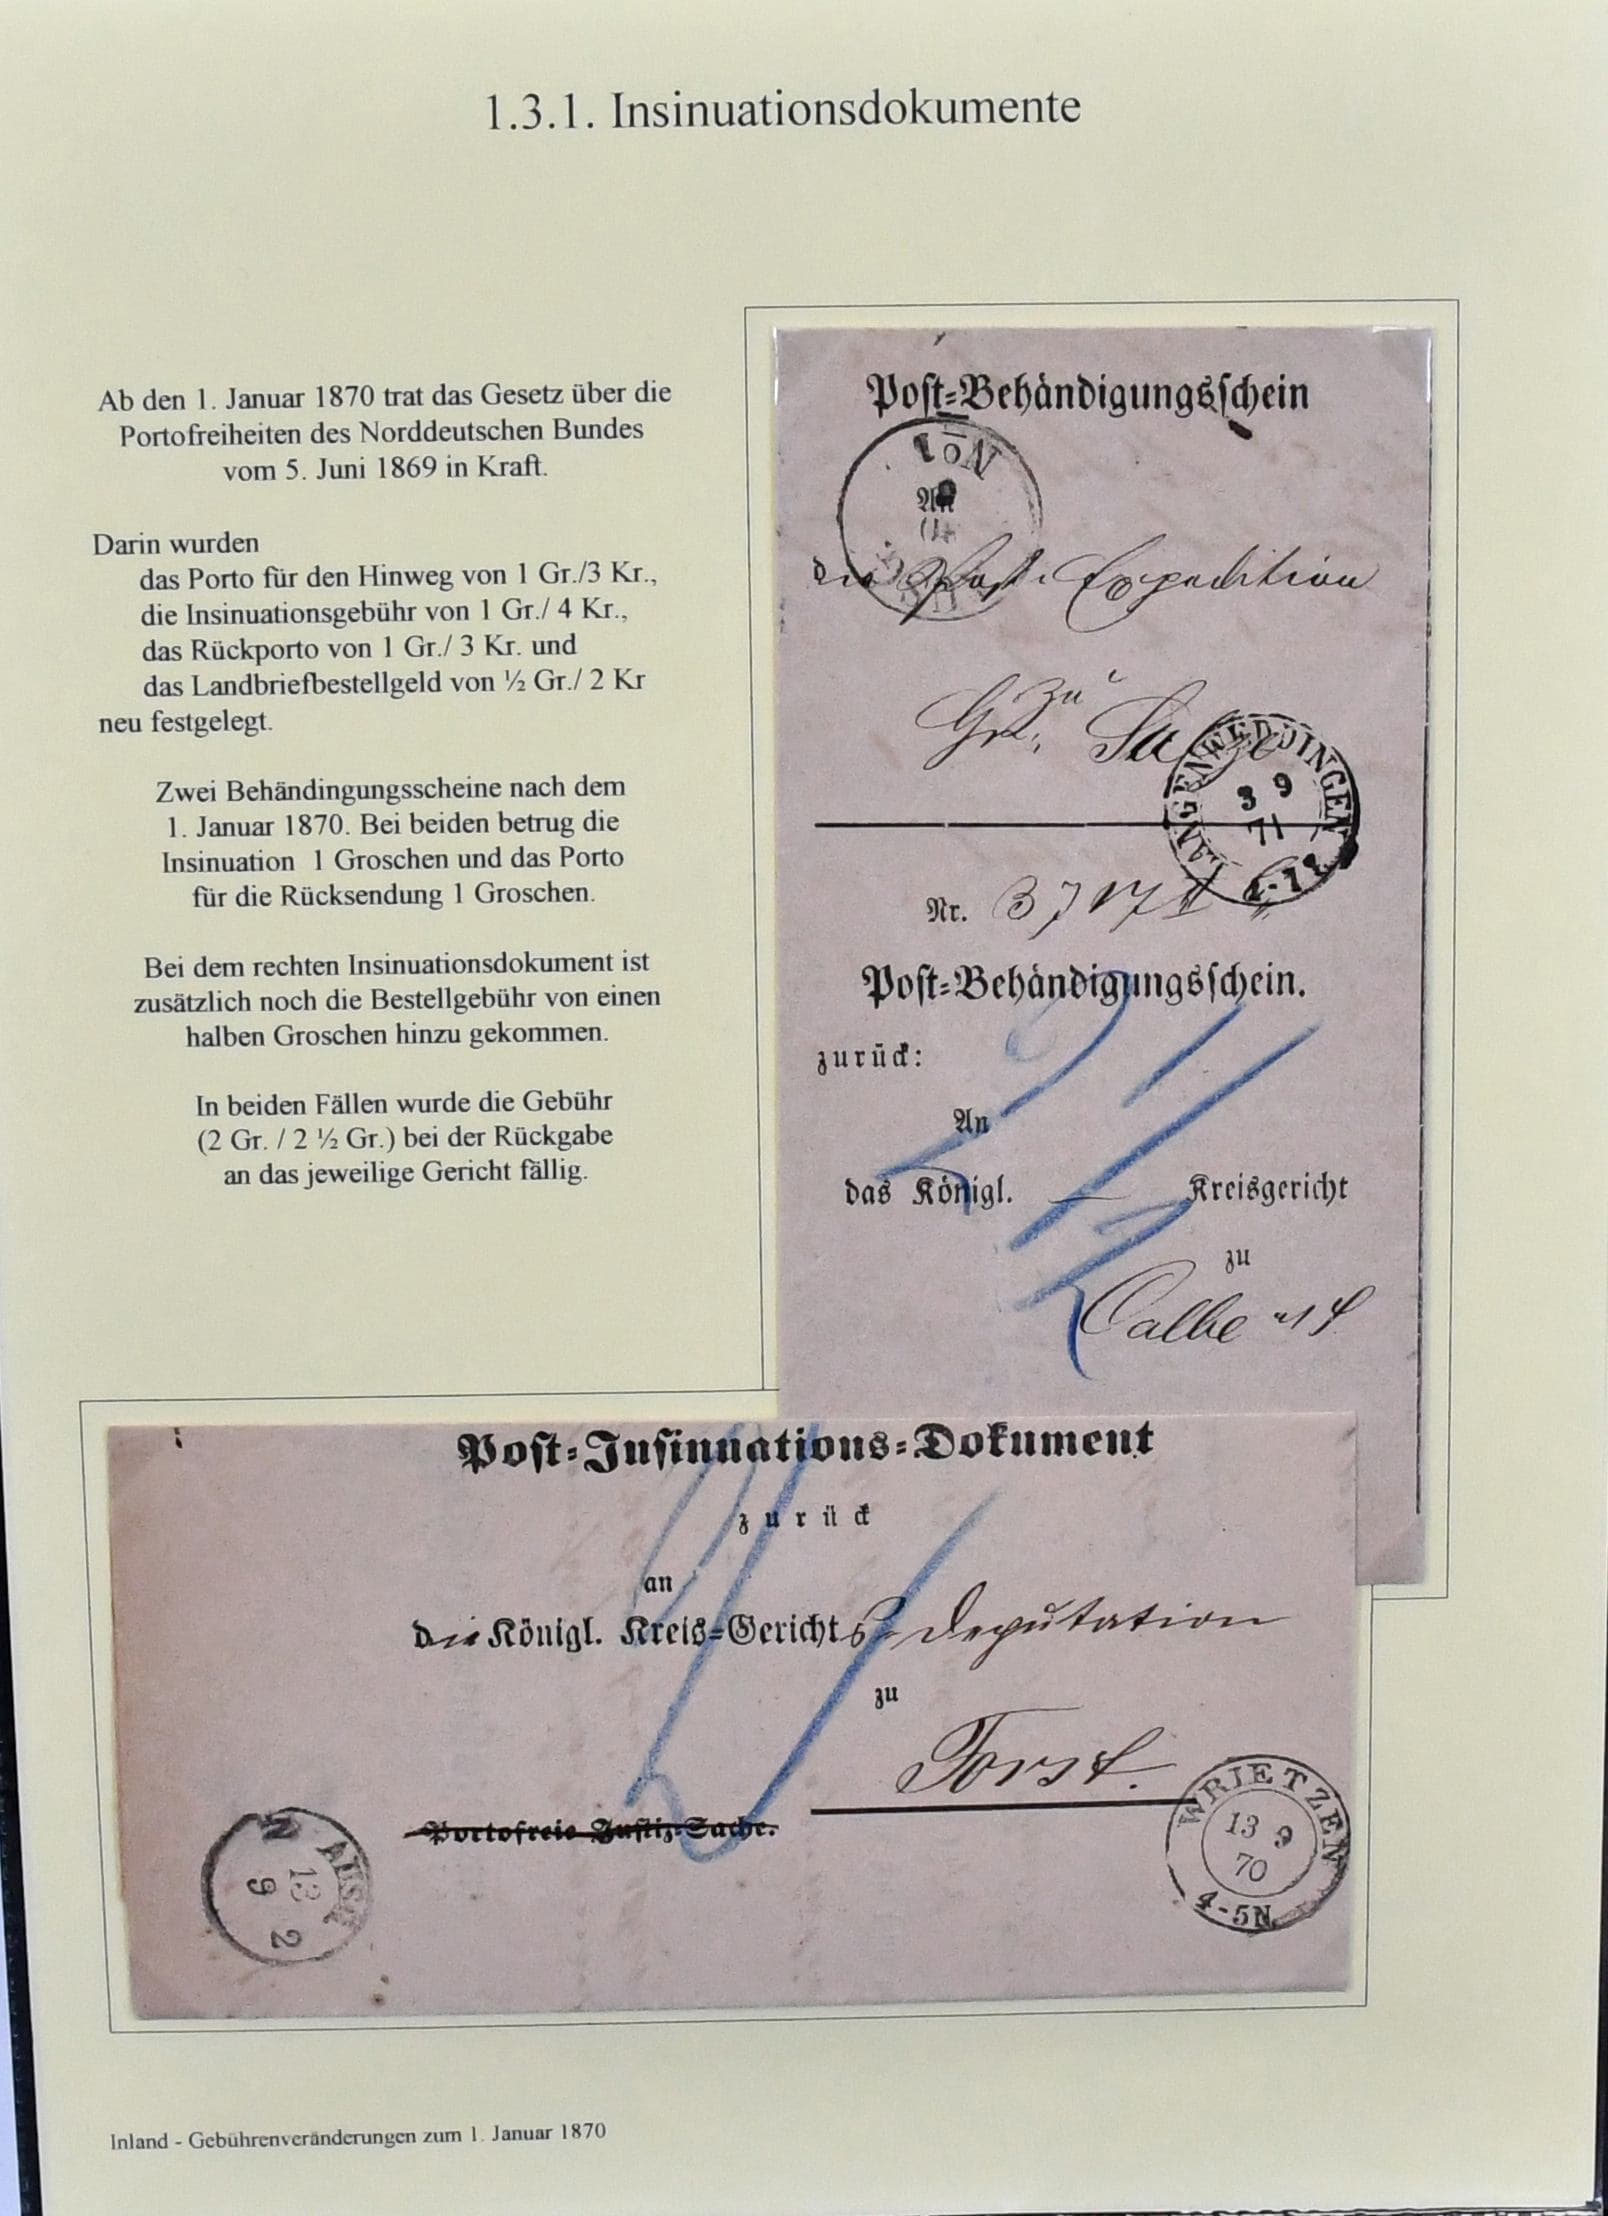 1.3.1. Insinuationsdokumente
Ab den 1. Januar 1870 trat das Gesetz über die
Portofreiheiten des Norddeutschen Bundes
vom 5. Juni 1869 in Kraft.
Darin wurden
das Porto für den Hinweg von 1 Gr./3 Kr.,
die Insinuationsgebühr von 1 Gr./ 4 Kr.,
das Rückporto von 1 Gr./ 3 Kr. und
das Landbriefbestellgeld von ½ Gr./ 2 Kr
neu festgelegt.
Zwei Behändingungsscheine nach dem
1. Januar 1870. Bei beiden betrug die
Insinuation 1 Groschen und das Porto
für die Rücksendung 1 Groschen.
Bei dem rechten Insinuationsdokument ist
zusätzlich noch die Bestellgebühr von einen
halben Groschen hinzu gekommen.
In beiden Fällen wurde die Gebühr
(2 Gr. / 2 ½ Gr.) bei der Rückgabe
an das jeweilige Gericht fällig.
Post-Behändigungsschein
An
die Post-Expedition
zu
Gr.
LANGENWEDDINGEN
3 9
71
Nr.
Post-Behändigungsschein.
zurück:
An
das Königl. Kreisgericht
zu
Calbe
Post-Insinuations-Dokument
zurück
an
die Königl. Kreis-Gerichts-Deputation
zu
Forst.
Portofreie Justiz-Sache.
WRIETZEN
13 9
70
4-5N
AUSG
13
9
2
N
Inland - Gebührenveränderungen zum 1. Januar 1870